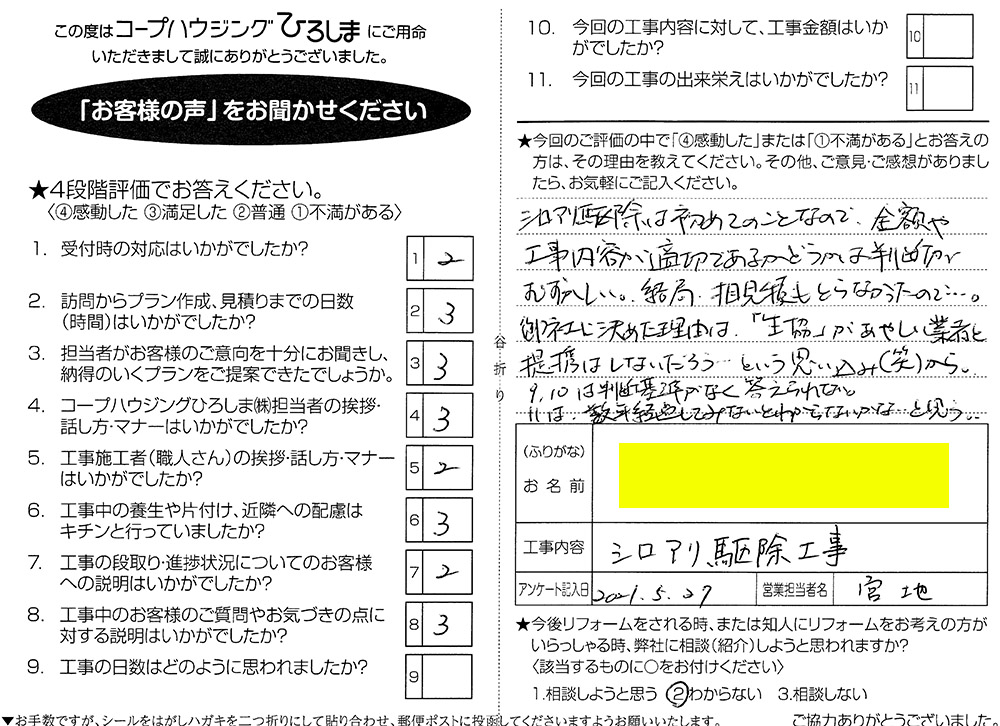 この度はコープハウジングひろしまにご用命
いただきまして誠にありがとうございました。
「お客様の声」をお聞かせください
★4段階評価でお答えください。
〈④感動した ③満足した ②普通 ①不満がある〉
1. 受付時の対応はいかがでしたか?
1 2
2. 訪問からプラン作成、見積りまでの日数
(時間)はいかがでしたか?
2 3
3. 担当者がお客様のご意向を十分にお聞きし、
納得のいくプランをご提案できたでしょうか。
3 3
4. コープハウジングひろしま㈱担当者の挨拶・
話し方・マナーはいかがでしたか?
4 3
5. 工事施工者(職人さん)の挨拶・話し方・マナー
はいかがでしたか?
5 2
6. 工事中の養生や片付け、近隣への配慮は
キチンと行っていましたか?
6 3
7. 工事の段取り・進捗状況についてのお客様
への説明はいかがでしたか?
7 2
8. 工事中のお客様のご質問やお気づきの点に
対する説明はいかがでしたか?
8 3
9. 工事の日数はどのように思われましたか?
9
谷折り
10. 今回の工事内容に対して、工事金額はいか
がでしたか?
10
11. 今回の工事の出来栄えはいかがでしたか?
11
★今回のご評価の中で「④感動した」または「①不満がある」とお答えの
方は、その理由を教えてください。その他、ご意見・ご感想がありまし
たら、お気軽にご記入ください。
シロアリ駆除は初めてのことなので、金額や
工事内容が適切であるかどうかは判断が
むずかしい。結局、相見積もとらなかったので…。
御社に決めた理由は、「生協」があやしい業者と
提携はしないだろう…という思い込み(笑)から。
9,10は判断基準がなく答えられない。
11は、数年経過してみないとわからないかな…と思う…
(ふりがな)
お名前
工事内容 シロアリ駆除工事
アンケート記入日 2021.5.27 営業担当者名 宮地
★今後リフォームをされる時、または知人にリフォームをお考えの方が
いらっしゃる時、弊社に相談(紹介)しようと思われますか?
〈該当するものに○をお付けください〉
1.相談しようと思う ②わからない 3.相談しない
▼お手数ですが、シールをはがしハガキを二つ折りにして貼り合わせ、郵便ポストに投函してくださいますようお願いいたします。
ご協力ありがとうございました。